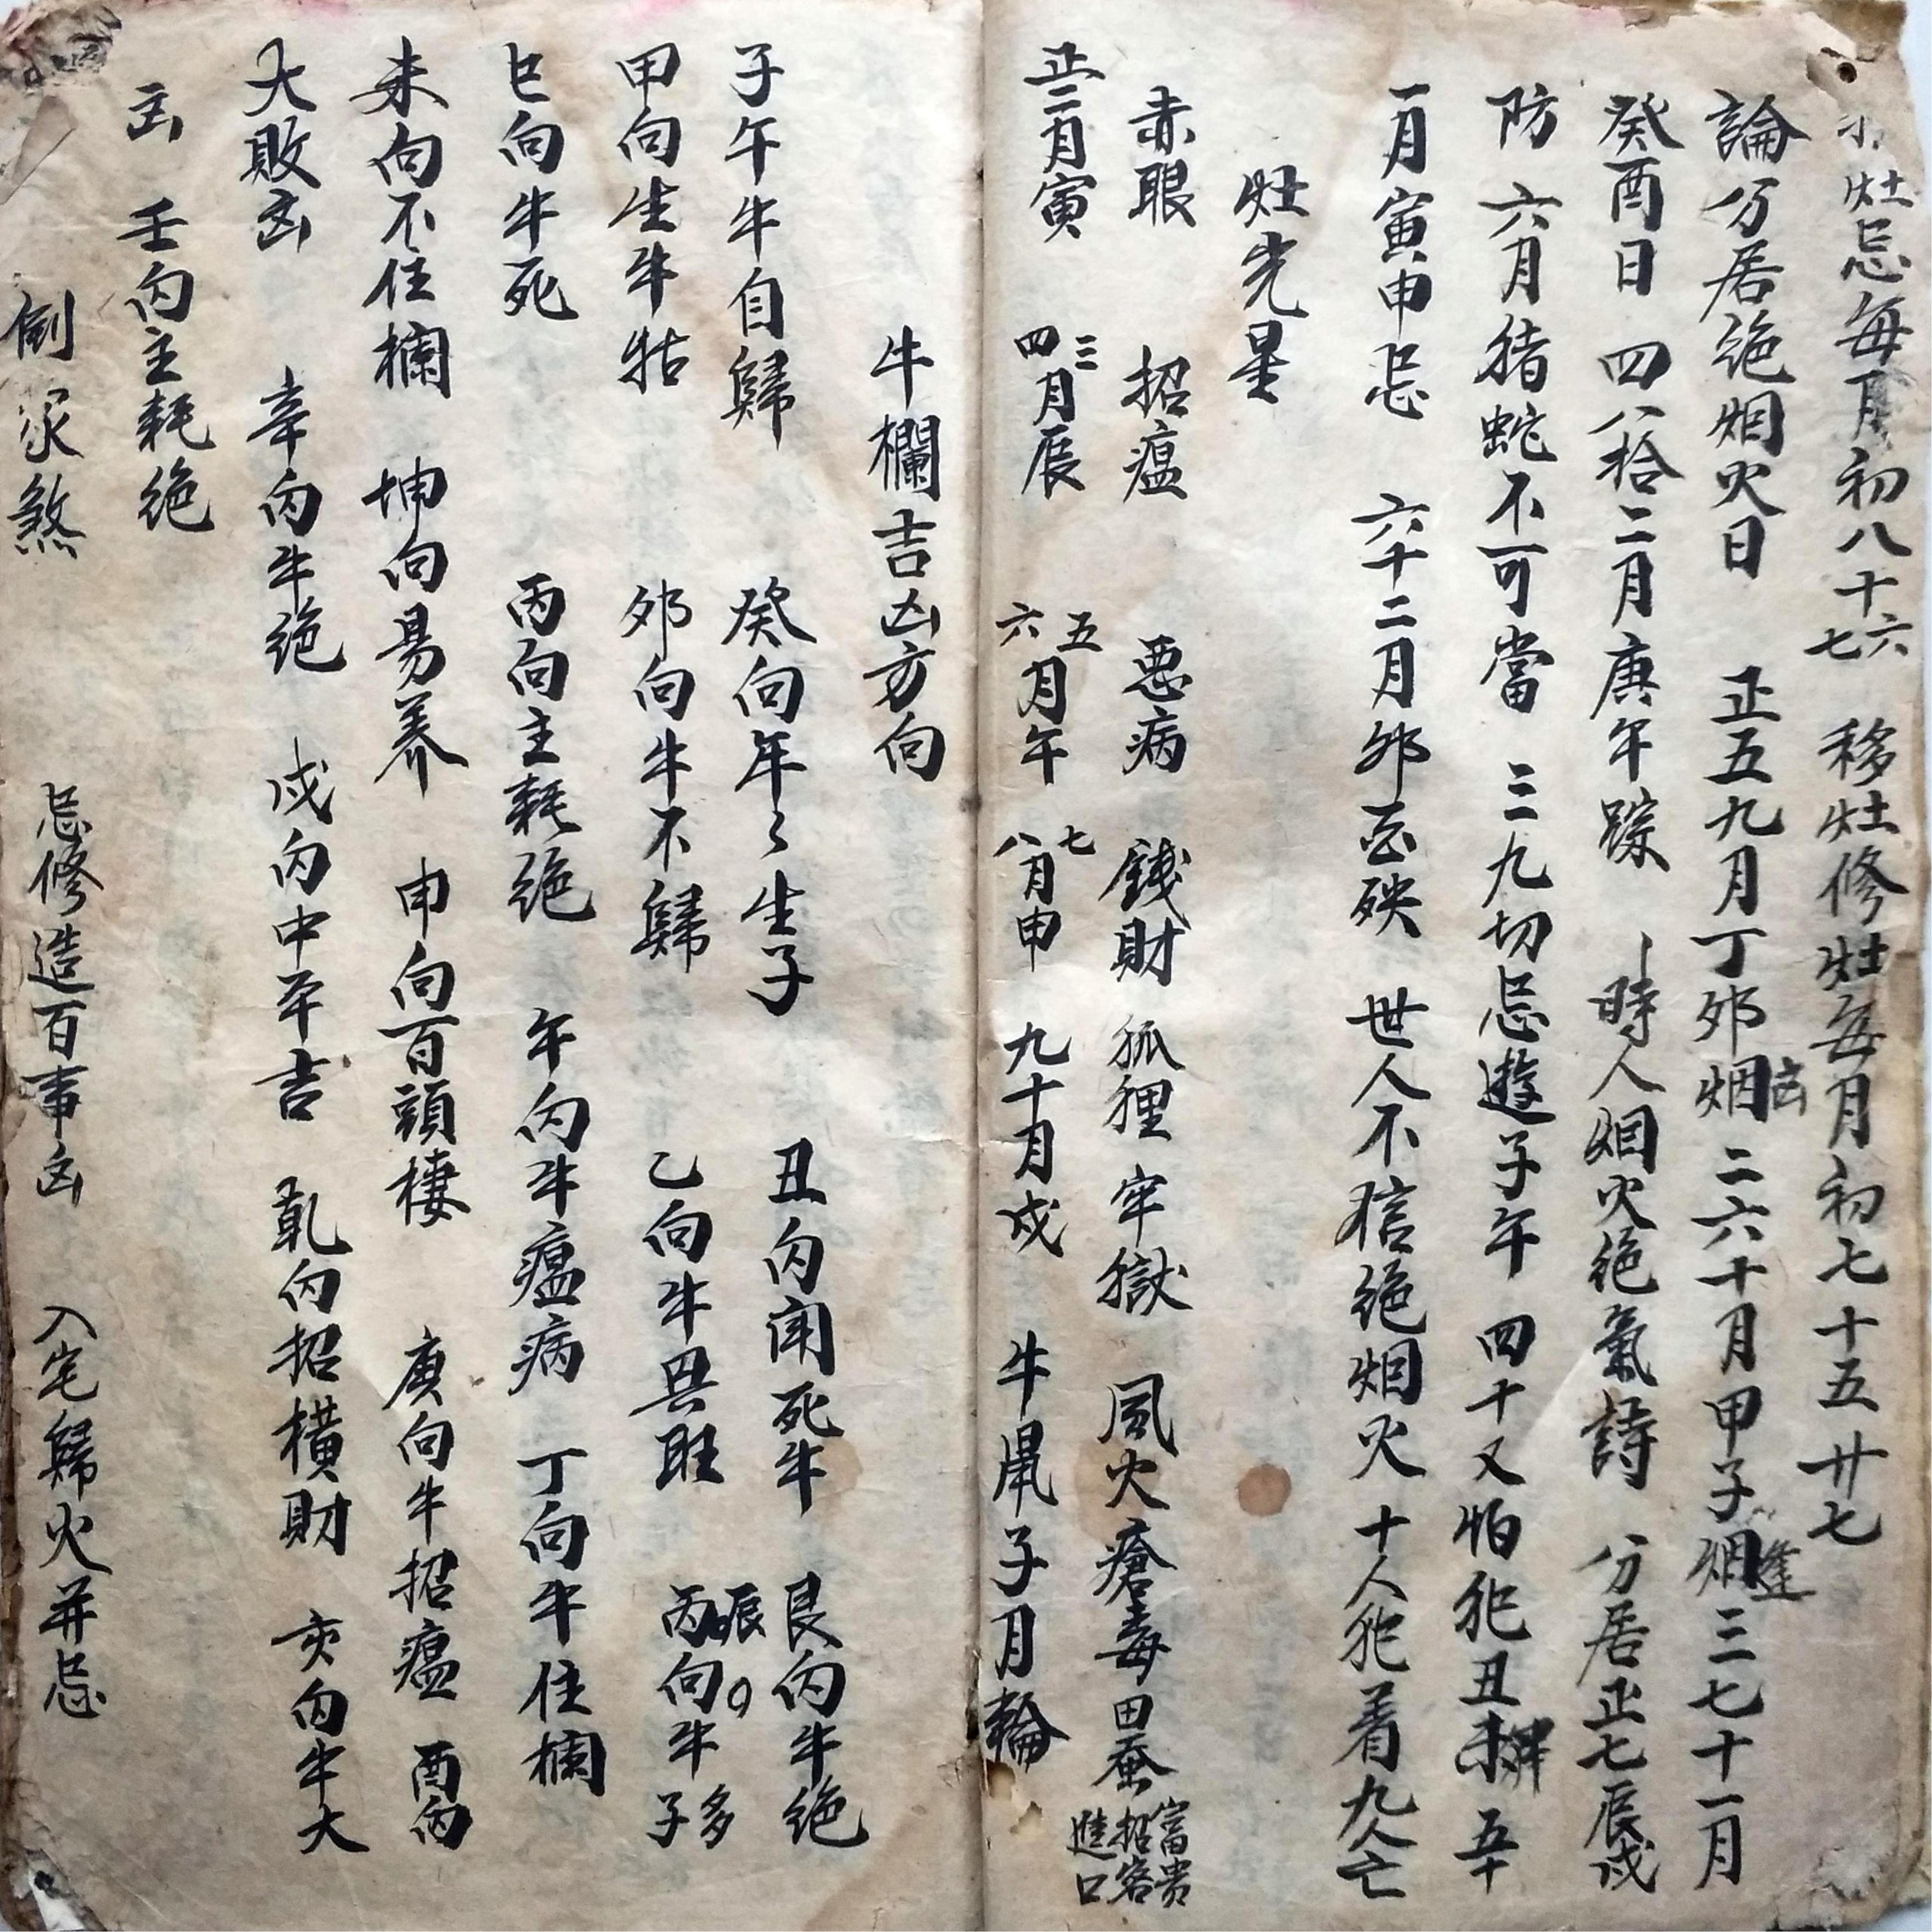 灶忌每月初八十六七 移灶修灶每月初七十五廿七
論分居绝烟火日 正五九月丁夘烟凶二六十月甲子烟逢三七十一月
癸酉日 四八拾二月庚午踪 時人烟火绝氣詩 分居正七辰戌
防 六月猪蛇不可當 三九切忌遊子午 四十又怕犯丑未 五十
一月寅申忌 六十二月夘酉殃 世人不信绝烟火 十人犯着九人亡
灶先星
赤眼 招瘟 惡病 錢財 狐狸 牢獄 風火 瘡毒 田蚕 富贵招客進口
正二月寅 三四月辰 五六月午 七八月申 九十月戌 牛鼠子月輪
牛欄吉凶方向
子午牛自歸 癸向年々生子 丑向闹死牛 艮向牛绝
甲向生牛牯 夘向牛不歸 乙向牛異旺 丙向牛多子
巳向牛死 丙向主耗绝 午向牛瘟病 丁向牛住欄
未向不住欄 坤向易养 申向百頭棲 庚向牛招瘟 酉向
大敗凶 辛向牛绝 戌向中平吉 乹向招横財 亥向牛大
凶 壬向主耗绝
倒家煞 忌修造百事凶 入宅歸火并忌